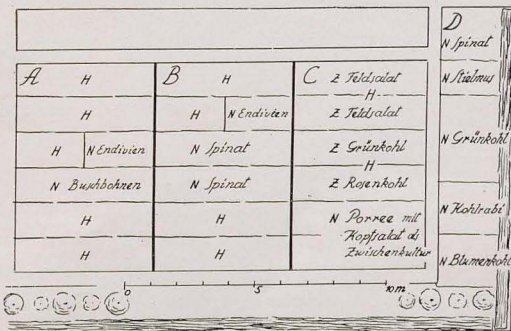 A H
H
H N Endivien
N Buschbohnen
H
H
B H
H N Endivien
N Spinat
N Spinat
H
H
C Z Feldsalat
H
Z Feldsalat
Z Grünkohl
H
Z Rosenkohl
N Porree mit
Kopfsalat als
Zwischenkultur
D
N Spinat
N Stielmus
N Grünkohl
N Kohlrabi
N Blumenkohl
0 5 10m